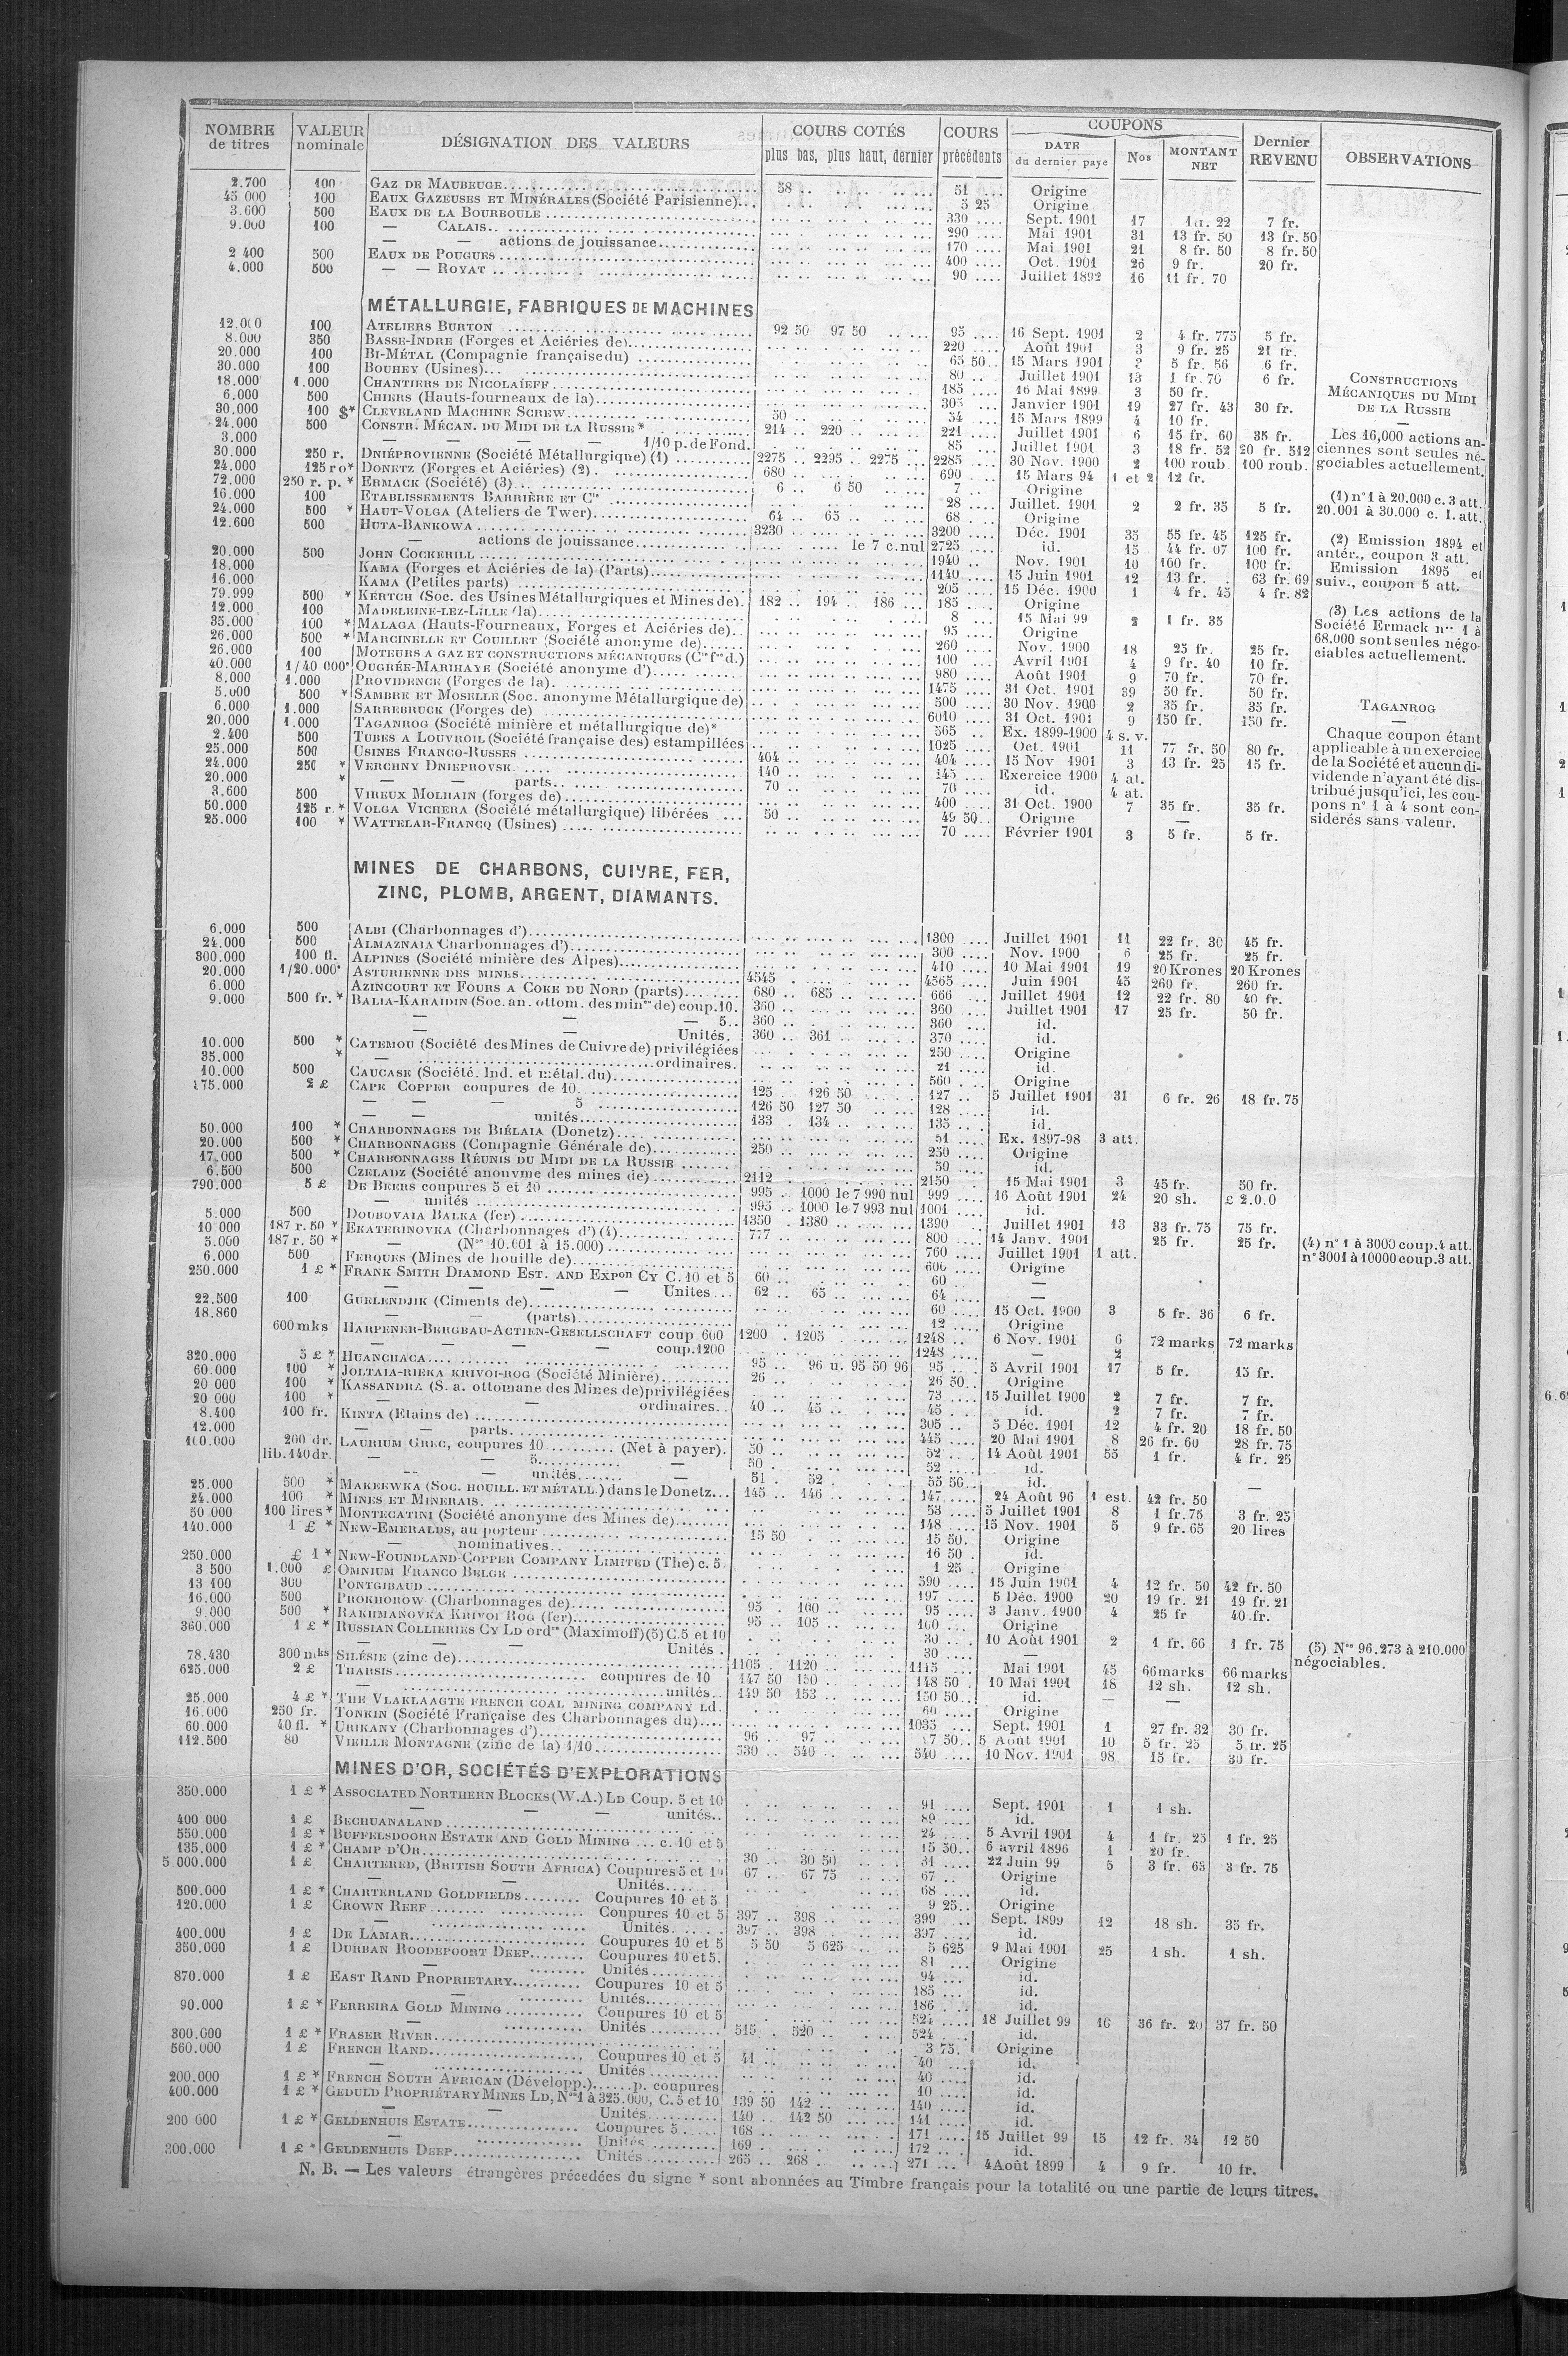 NOMBRE de titres | VALEUR nominale | DÉSIGNATION DES VALEURS | COURS COTÉS plus bas, plus haut, dernier | COURS précédents | COUPONS DATE du dernier payé | Nos | MONTANT NET | Dernier REVENU | OBSERVATIONS
2.700 100 GAZ DE MAUBEUGE 58 .. 51 .... Origine
45 000 100 EAUX GAZEUSES ET MINÉRALES (Société Parisienne) 5 25 Origine
3.600 500 EAUX DE LA BOURBOULE 330 .... Sept. 1901 17 22 7 fr.
9.000 100 — CALAIS 290 .... Mai 1901 31 13 fr. 50 13 fr. 50
— — actions de jouissance 170 .... Mai 1901 21 8 fr. 50 8 fr. 50
2 400 500 EAUX DE POUGUES 400 .... Oct. 1901 26 9 fr. 20 fr.
4.000 500 — — ROYAT 90 .... Juillet 1892 16 11 fr. 70
MÉTALLURGIE, FABRIQUES DE MACHINES
12.000 100 ATELIERS BURTON 92 50 97 50 95 .... 16 Sept. 1901 2 4 fr. 775 5 fr.
8.000 350 BASSE-INDRE (Forges et Aciéries de) 220 .... Août 1901 3 9 fr. 25 21 fr.
20.000 100 BI-MÉTAL (Compagnie française du) 65 50 .. 15 Mars 1901 5 fr. 56 6 fr.
30.000 100 BOUHEY (Usines) 80 .. Juillet 1901 13 1 fr. 70 6 fr.
18.000 1.000 CHANTIERS DE NICOLAÏEFF 485 .... 16 Mai 1899 3 50 fr.
6.000 500 CHIERS (Hauts-fourneaux de la) 305 ... Janvier 1901 19 27 fr. 43 30 fr.
30.000 100 $* CLEVELAND MACHINE SCREW 50 54 ... 15 Mars 1899 4 10 fr.
24.000 500 CONSTR. MÉCAN. DU MIDI DE LA RUSSIE* 214 .. 220 .. 221 .... Juillet 1901 6 15 fr. 60 35 fr.
3.000 — — — — 1/10 p. de Fond. 85 ... Juillet 1901 3 18 fr. 52 20 fr. 512
30.000 250 r. DNIÉPROVIENNE (Société Métallurgique) (1) 2275 .. 2295 .. 2275 ... 2285 .... 30 Nov. 1900 2 100 roub. 100 roub.
24.000 125 ro* DONETZ (Forges et Aciéries) (2) 680 690 ... 15 Mars 94 1 et 2 12 fr.
72.000 250 r. p. * ERMACK (Société) (3) 6 .. 6 50 7 .. Origine
16.000 100 ETABLISSEMENTS BARRIÈRE ET Cie 28 .... Juillet. 1901 2 2 fr. 35 5 fr.
24.000 500 * HAUT-VOLGA (Ateliers de Twer) 64 .. 65 .. 68 ... Origine
12.600 500 HUTA-BANKOWA 3230 3200 .... Déc. 1901 35 55 fr. 45 125 fr.
— actions de jouissance le 7 c. nul 2725 .... id. 15 44 fr. 07 100 fr.
20.000 500 JOHN COCKERILL 1940 .. Nov. 1901 10 100 fr. 100 fr.
18.000 KAMA (Forges et Aciéries de la) (Parts) 1140 .... 15 Juin 1901 12 13 fr. 63 fr. 69
16.000 KAMA (Petites parts) 205 .... 15 Déc. 1900 1 4 fr. 45 4 fr. 82
79.999 500 * KERTCH (Soc. des Usines Métallurgiques et Mines de) 182 .. 194 .. 186 ... 185 .... Origine
12.000 100 MADELEINE-LEZ-LILLE (la) 8 .... 15 Mai 99 2 1 fr. 35
35.000 100 * MALAGA (Hauts-Fourneaux, Forges et Aciéries de) 95 .... Origine
26.000 500 * MARCINELLE ET COUILLET (Société anonyme de) 260 .... Nov. 1900 18 25 fr. 25 fr.
26.000 100 MOTEURS A GAZ ET CONSTRUCTIONS MÉCANIQUES (Cie fse d.) 100 .... Avril 1901 4 9 fr. 40 10 fr.
40.000 1/40 000e OUGRÉE-MARIHAYE (Société anonyme d') 980 .... Août 1901 9 70 fr. 70 fr.
8.000 1.000 PROVIDENCE (Forges de la) 1475 .... 31 Oct. 1901 39 50 fr. 50 fr.
5.000 500 * SAMBRE ET MOSELLE (Soc. anonyme Métallurgique de) 500 .... 30 Nov. 1900 2 35 fr. 35 fr.
6.000 1.000 SARREBRUCK (Forges de) 6010 .... 31 Oct. 1901 9 150 fr. 150 fr.
20.000 1.000 TAGANROG (Société minière et métallurgique de)* 565 .. Ex. 1899-1900 4 s. v.
2.400 500 TUBES A LOUVROIL (Société française des) estampillées 1025 .... Oct. 1901 11 77 fr. 50 80 fr.
25.000 500 USINES FRANCO-RUSSES 404 404 .... 15 Nov 1901 3 13 fr. 25 15 fr.
24.000 250 * VERCHNY DNIEPROVSK 140 145 ... Exercice 1900 4 at.
20.000 * — — parts 70 .. 70 .... id. 4 at.
3.600 500 VIREUX MOLHAIN (forges de) 400 .... 31 Oct. 1900 7 35 fr. 35 fr.
50.000 125 r. * VOLGA VICHERA (Société métallurgique) libérées 50 .. 49 50 .. Origine —
25.000 100 * WATTELAR-FRANCQ (Usines) 70 .... Février 1901 3 5 fr. 5 fr.
CONSTRUCTIONS
MÉCANIQUES DU MIDI
DE LA RUSSIE
—
Les 16,000 actions an-
ciennes sont seules né-
gociables actuellement.
(1) n° 1 à 20.000 c. 3 att.
20.001 à 30.000 c. 1. att.
(2) Emission 1894 et
antér., coupon 3 att.
Emission 1895 et
suiv., coupon 5 att.
(3) Les actions de la
Société Ermack nos 1 à
68.000 sont seules négo-
ciables actuellement.
TAGANROG
—
Chaque coupon étant
applicable à un exercice
de la Société et aucun di-
vidende n'ayant été dis-
tribué jusqu'ici, les cou-
pons n° 1 à 4 sont con-
siderés sans valeur.
MINES DE CHARBONS, CUIVRE, FER,
ZINC, PLOMB, ARGENT, DIAMANTS.
6.000 500 ALBI (Charbonnages d') 1300 .... Juillet 1901 11 22 fr. 30 45 fr.
24.000 500 ALMAZNAIA Charbonnages d') 300 .... Nov. 1900 6 25 fr. 25 fr.
300.000 100 fl. ALPINES (Société minière des Alpes) 410 .... 10 Mai 1901 19 20 Krones 20 Krones
20.000 1/20.000e ASTURIENNE DES MINES 4545 4565 .... Juin 1901 45 260 fr. 260 fr.
6.000 AZINCOURT ET FOURS A COKE DU NORD (parts) 680 .. 685 .. 666 Juillet 1901 12 22 fr. 80 40 fr.
9.000 500 fr. * BALIA-KARAIDIN (Soc. an. ottom. des mines de) coup. 10. 360 .. 360 .... Juillet 1901 17 25 fr. 50 fr.
— — — 5 .. 360 .. 360 .... id.
— — Unités. 360 .. 361 370 .... id.
10.000 500 * CATEMOU (Société des Mines de Cuivre de) privilégiées 250 .... Origine
35.000 * — ordinaires. 21 .... id.
10.000 500 CAUCASE (Société. Ind. et métal. du) 560 .. Origine
175.000 2 £ CAPE COPPER coupures de 10. 125 .. 126 50 127 .. 5 Juillet 1901 31 6 fr. 26 18 fr. 75
— — — 5 126 50 127 50 128 .. id.
— — unités 133 . 134 .. 135 .. id.
50.000 100 * CHARBONNAGES DE BIÉLAIA (Donetz) 51 .... Ex. 1897-98 3 att.
20.000 500 * CHARBONNAGES (Compagnie Générale de) 250 .. 250 .... Origine
17.000 500 * CHARBONNAGES RÉUNIS DU MIDI DE LA RUSSIE 50 .... id.
6.500 500 CZELADZ (Société anonyme des mines de) 2112 2150 15 Mai 1901 3 45 fr. 50 fr.
790.000 5 £ DE BEERS coupures 5 et 10 995 . 1000 le 7 990 nul 999 .... 16 Août 1901 24 20 sh. £ 2.0.0
— unités 995 .. 1000 le 7 993 nul 1001 .... id.
5.000 500 DOUBOVAIA BALKA (fer) 1350 . 1380 .. 1390 Juillet 1901 13 33 fr. 75 75 fr.
10 000 187 r. 50 * EKATERINOVKA (Charbonnages d') (4) 777 .. 800 .... 14 Janv. 1901 25 fr. 25 fr.
5.000 187 r. 50 * — (Nos 10.001 à 15.000) 760 .... Juillet 1901 1 att.
6.000 500 FERQUES (Mines de houille de) 600 .... Origine
250.000 1 £ * FRANK SMITH DIAMOND EST. AND EXPon CY C. 10 et 5 60 .. 60 .. —
— — — Unites ... 62 .. 65 .. 64 .... —
22.500 100 GUELENDJIK (Ciments de) 60 .... 15 Oct. 1900 3 5 fr. 36 6 fr.
18.860 — — (parts) 12 .... Origine
600 mks HARPENER-BERGBAU-ACTIEN-GESELLSCHAFT coup 600 1200 . 1205 1248 .. 6 Nov. 1901 6 72 marks 72 marks
— — — — coup. 1200 1248 .... — 2
320.000 5 £ * HUANCHACA 95 .. 96 u. 95 50 96 95 .. 5 Avril 1901 17 5 fr. 15 fr.
60.000 100 * JOLTAIA-RIEKA KRIVOI-ROG (Société Minière) 26 .. 26 50 .. Origine
20 000 100 * KASSANDRA (S. a. ottomane des Mines de) privilégiées 73 .... 15 Juillet 1900 2 7 fr. 7 fr.
20 000 100 * — — ordinaires 40 .. 45 .. 45 .. id. 2 7 fr. 7 fr.
8.400 100 fr. KINTA (Etains de) 305 .. 5 Déc. 1901 12 4 fr. 20 18 fr. 50
12.000 — — parts 445 .... 20 Mai 1901 8 26 fr. 60 28 fr. 75
100.000 200 dr. LAURIUM GREC, coupures 10 (Net à payer). 50 .. 52 .. 14 Août 1901 55 1 fr. 4 fr. 25
lib. 140 dr. — — 5 — 50 .. 52 .... id.
— — unités — 51 . 52 55 50 .. id. —
25.000 500 * MAKEEWKA (SOC. HOUILL. ET MÉTALL.) dans le Donetz 145 .. 146 .. 147 .... 24 Août 96 1 est. 42 fr. 50
24.000 100 * MINES ET MINERAIS 53 .... 5 Juillet 1901 8 1 fr. 75 3 fr. 25
50 000 100 lires * MONTECATINI (Société anonyme des Mines de) 148 .... 15 Nov. 1901 5 9 fr. 65 20 lires
140.000 1 £ * NEW-EMERALDS, au porteur 15 50 15 50. Origine
— nominatives 16 50 . id.
250.000 £ 1 * NEW-FOUNDLAND COPPER COMPANY LIMITED (The) c. 5 1 25 . Origine
3 500 1.000 £ OMNIUM FRANCO BELGE 590 .... 15 Juin 1901 4 12 fr. 50 42 fr. 50
13 100 300 PONTGIBAUD 197 ... 5 Déc. 1900 20 19 fr. 21 19 fr. 21
16.000 500 PROKHOROW (Charbonnages de) 95 . 100 .. 95 .... 3 Janv. 1900 4 25 fr 40 fr.
9.000 500 * RAKHMANOVKA KRIVOI ROG (fer) 95 .. 105 .. 100 .... Origine
360.000 1 £ * RUSSIAN COLLIERIES CY LD ordres (Maximoff) (5) C. 5 et 10 30 .. . 10 Août 1901 2 1 fr. 66 1 fr. 75
— — — Unités . 30 .... —
78.430 300 mks SILÉSIE (zinc de) 1105 . 1120 .. 1115 .. Mai 1901 45 66 marks 66 marks
625.000 2 £ THARSIS coupures de 10 147 50 150 .. 148 50 . 10 Mai 1901 18 12 sh. 12 sh.
— unités 149 50 153 .. 150 50 .. id. — —
25.000 4 £ * THE VLAKLAAGTE FRENCH COAL MINING COMPANY Ld. 60 .... Origine
16.000 250 fr. TONKIN (Société Française des Charbonnages du) 1035 ... Sept. 1901 1 27 fr. 32 30 fr.
60.000 40 fl. * URIKANY (Charbonnages d') 96 .. 97 .. 7 50 .. 5 Août 1901 10 5 fr. 25 5 fr. 25
112.500 80 VIEILLE MONTAGNE (zinc de la) 1/10 530 .. 540 .. 540 .... 10 Nov. 1901 98 15 fr. 30 fr.
(4) n° 1 à 3000 coup. 4 att.
n° 3001 à 10000 coup. 3 att.
(5) Nos 96.273 à 210.000
négociables.
MINES D'OR, SOCIÉTÉS D'EXPLORATIONS
350.000 1 £ * ASSOCIATED NORTHERN BLOCKS (W.A.) LD Coup. 5 et 10 91 .... Sept. 1901 1 1 sh.
— — — unités .. 89 .... id.
400 000 1 £ BECHUANALAND 24 .... 5 Avril 1901 4 1 fr. 25 1 fr. 25
550.000 1 £ * BUFFELSDOORN ESTATE AND GOLD MINING ... c. 10 et 5 15 50 .. 6 avril 1896 1 20 fr.
135.000 1 £ * CHAMP D'OR 30 .. 30 50 31 .... 22 Juin 99 5 3 fr. 65 3 fr. 75
5 000.000 1 £ CHARTERED, (BRITISH SOUTH AFRICA) Coupures 5 et 10 67 .. 67 75 67 .. Origine
— — Unités 68 .... id.
500.000 1 £ * CHARTERLAND GOLDFIELDS Coupures 10 et 5 9 25 .. Origine
120.000 1 £ CROWN REEF Coupures 10 et 5 397 .. 398 .. 399 .. Sept. 1899 12 18 sh. 35 fr.
— Unités 397 .. 398 .. 397 .... id.
400.000 1 £ DE LAMAR Coupures 10 et 5 5 50 5 625 5 625 9 Mai 1901 25 1 sh. 1 sh.
350.000 1 £ DURBAN ROODEPOORT DEEP Coupures 10 et 5. 81 .... Origine
— Unités 94 ... id.
870.000 1 £ EAST RAND PROPRIETARY Coupures 10 et 5 185 .... id.
— Unités 186 .... id.
90.000 1 £ * FERREIRA GOLD MINING Coupures 10 et 5 524 .... 18 Juillet 99 16 36 fr. 20 37 fr. 50
— Unités 515 . 520 .. 524 .... id.
300.000 1 £ * FRASER RIVER 3 75. Origine
560.000 1 £ FRENCH RAND Coupures 10 et 5 41 .. 40 .... id.
— Unités 40 .... id.
200.000 1 £ * FRENCH SOUTH AFRICAN (Développ.) p. coupures 10 .... id.
400.000 1 £ * GEDULD PROPRIÉTARY MINES LD, Nos 1 à 325.000, C. 5 et 10 139 50 142 .. 140 .... id.
— — Unités 140 .. 142 50 141 .... id.
200 000 1 £ * GELDENHUIS ESTATE Coupures 5 168 .. 171 .... 15 Juillet 99 15 12 fr. 34 12 50
— Unités 169 .. 172 .. id.
300.000 1 £ * GELDENHUIS DEEP Unités 265 .. 268 .. 271 ... 4 Août 1899 4 9 fr. 10 fr.
N. B. — Les valeurs étrangères précédées du signe * sont abonnées au Timbre français pour la totalité ou une partie de leurs titres.